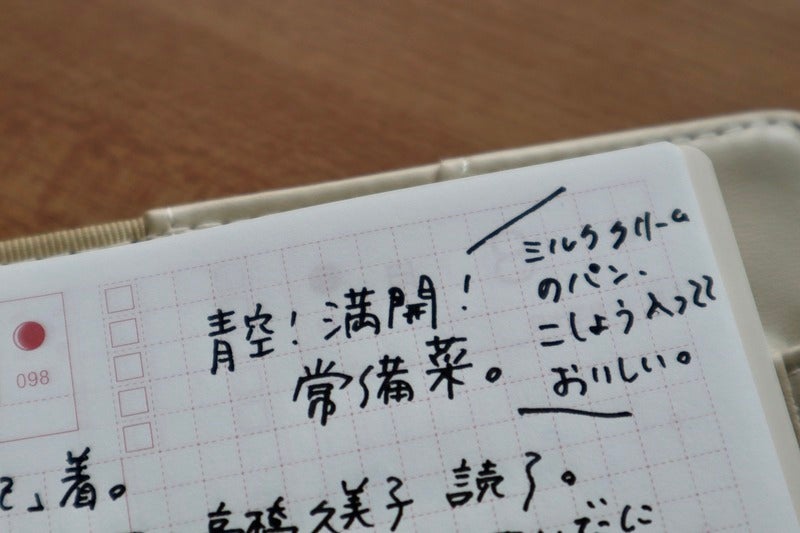 098
青空！満開！
常備菜。
ミルククリーム
のパン、
こしょう入ってて
おいしい。
」着。
高橋久美子 読了。
だーに